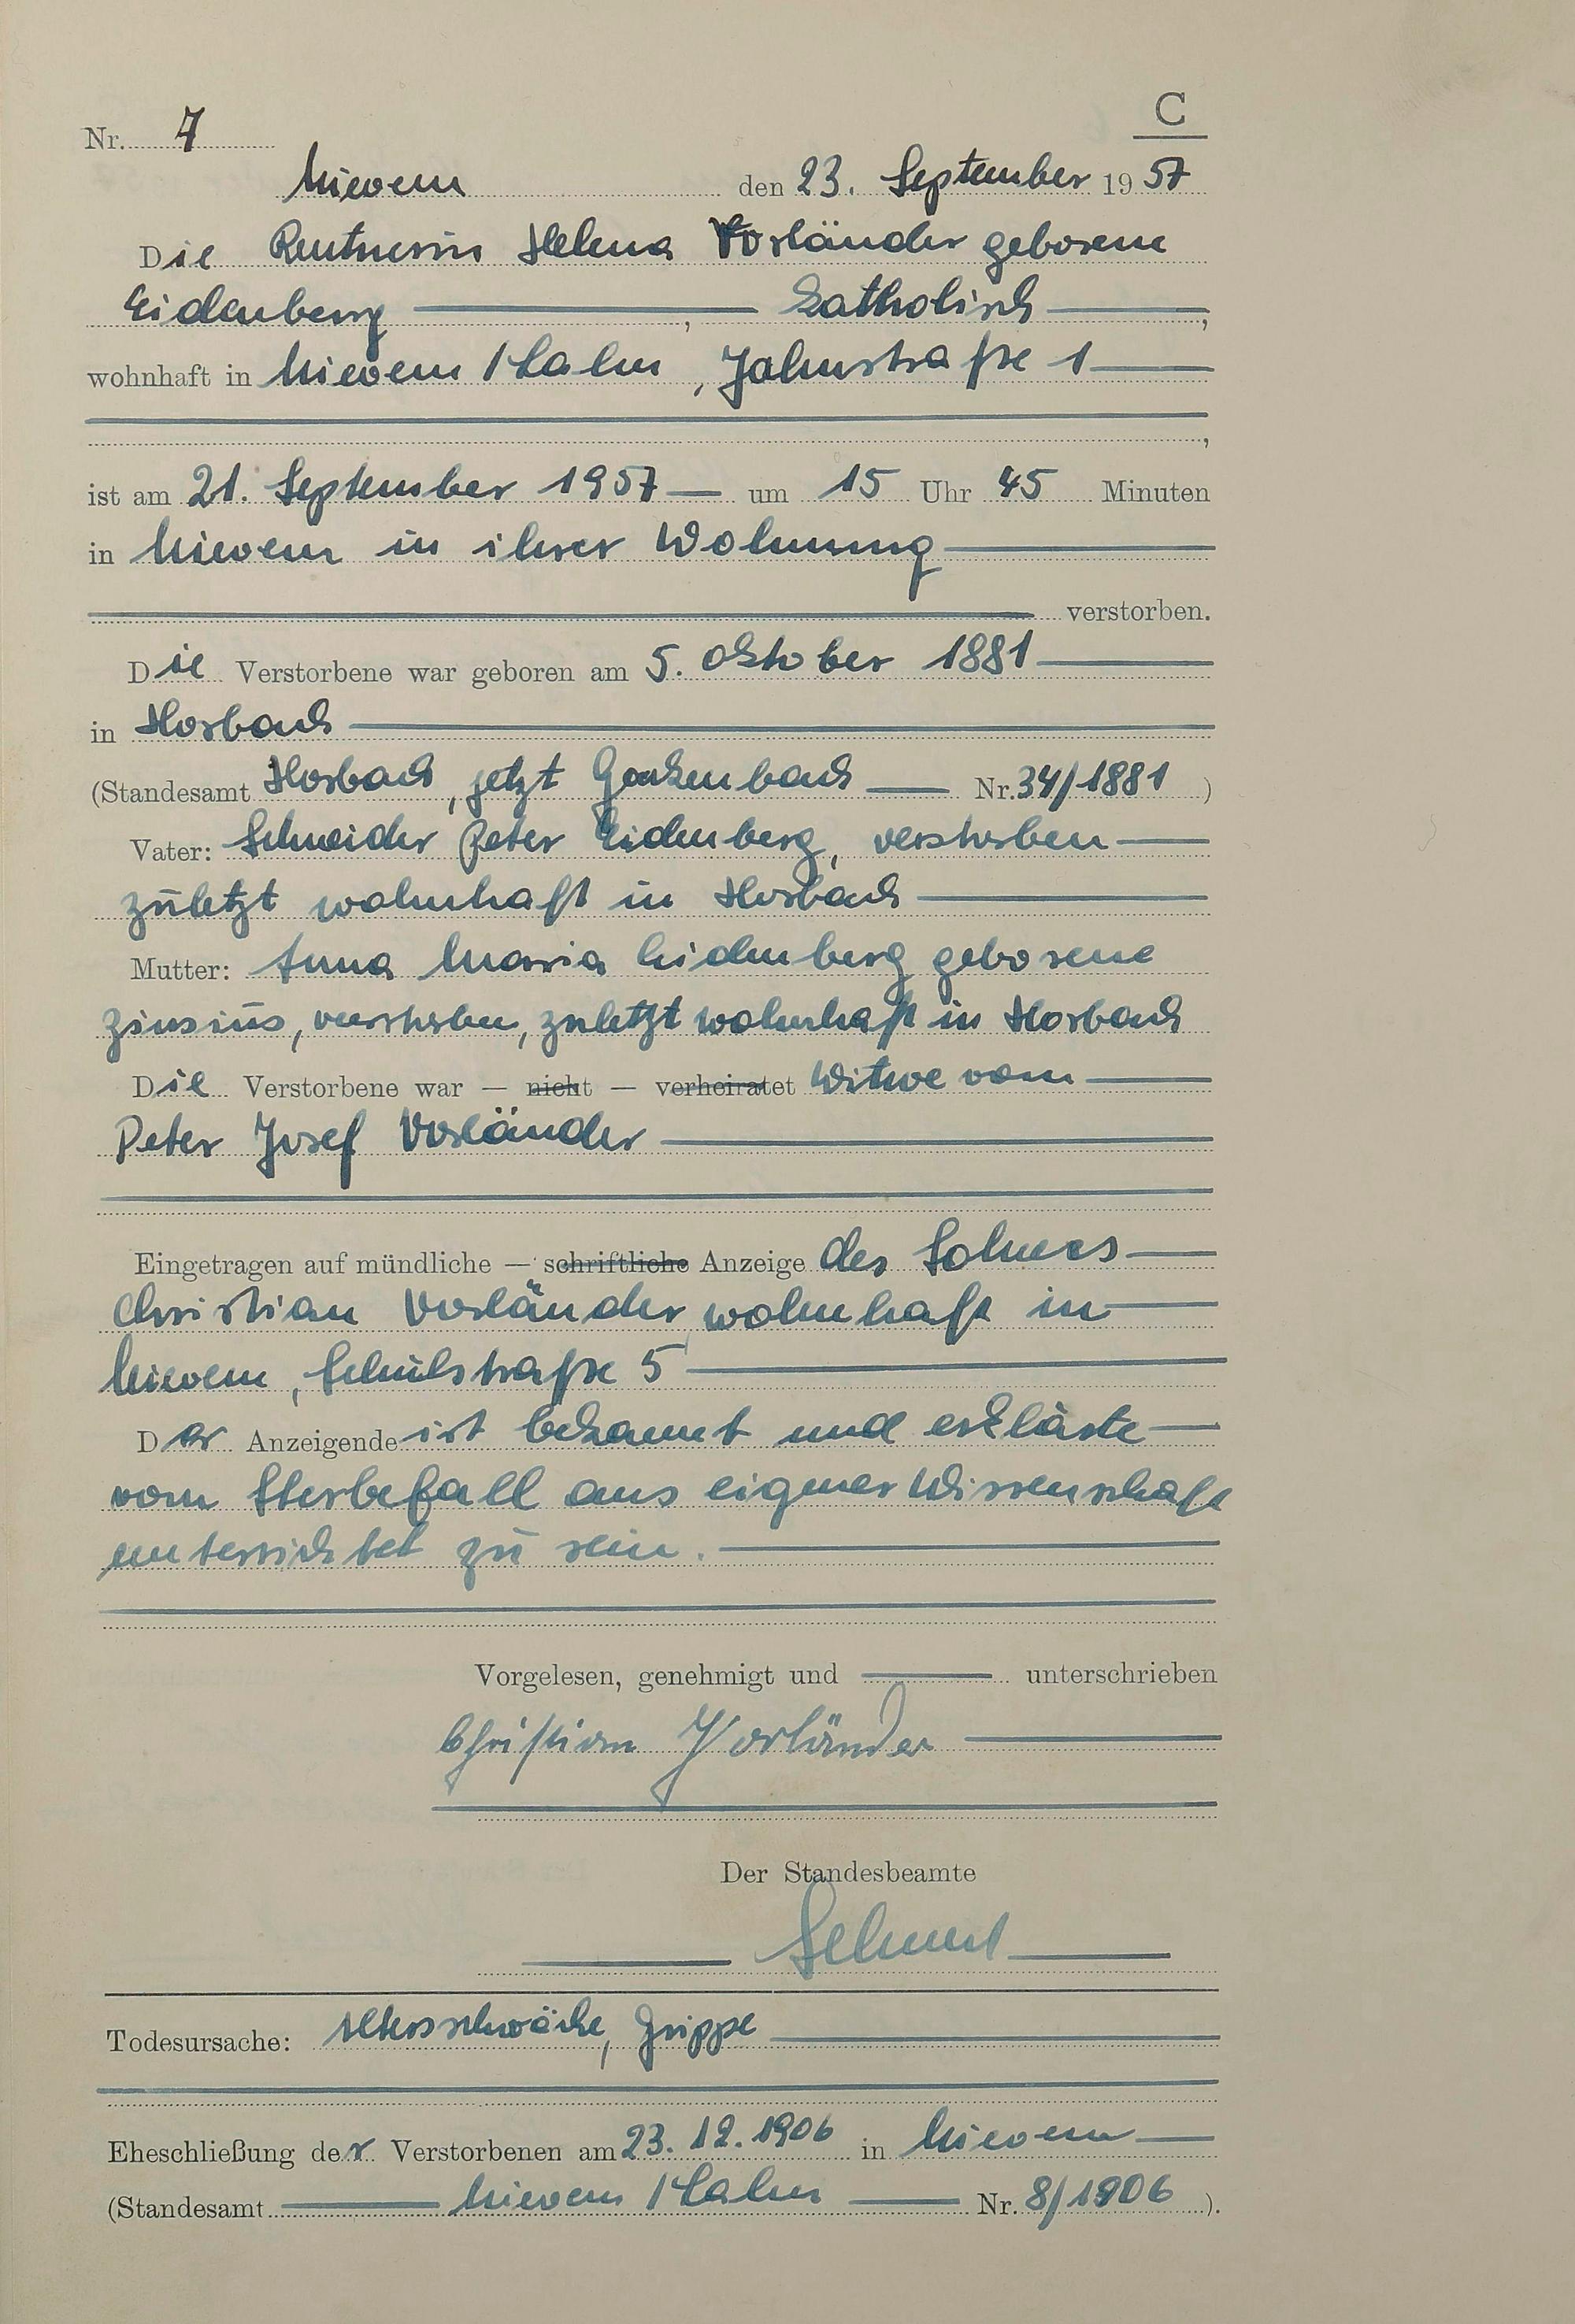 C
Nr. 7
Mievern den 23. September 1957
Die Rentnerin Helena Vorländer geborene
Eidenberg, katholisch,
wohnhaft in Nievern/Lahn, Jahnstraße 1
,
ist am 21. September 1957 um 15 Uhr 45 Minuten
in Nievern in ihrer Wohnung
verstorben.
Die Verstorbene war geboren am 5. Oktober 1881
in Horbach
(Standesamt Horbach, jetzt Gackenbach Nr. 34/1881)
Vater: Schneider Peter Eidenberg, verstorben
zuletzt wohnhaft in Horbach
Mutter: Anna Maria Eidenberg geborene
, verstorben, zuletzt wohnhaft in Horbach
Die Verstorbene war — nicht — verheiratet Witwe vom
Peter Josef Vorländer
Eingetragen auf mündliche — schriftliche Anzeige des Sohnes
Christian Vorländer wohnhaft in
Nievern, Schulstraße 5
Der Anzeigende ist bekannt und erklärte
vom Sterbefall aus eigener Wissenschaft
unterrichtet zu sein.
Vorgelesen, genehmigt und unterschrieben
Christian Vorländer
Der Standesbeamte
Todesursache: Altersschwäche, Grippe
Eheschließung der Verstorbenen am 23.12.1906 in Nievern
(Standesamt Nievern/Lahn Nr. 8/1906).